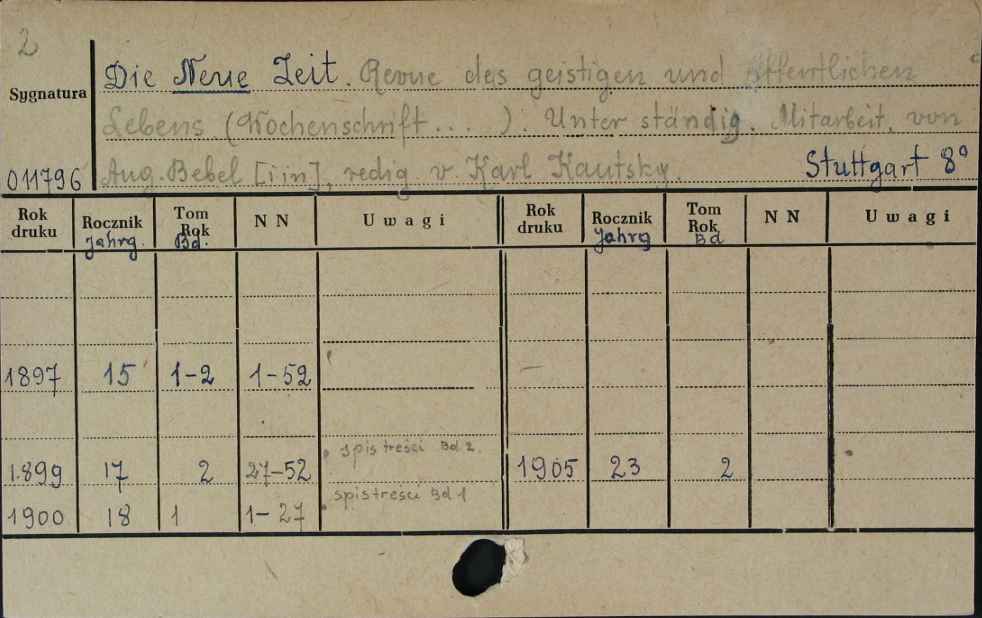 2
Die Neue Zeit. Revue des geistigen und öffentlichen
Sygnatura
Lebens (Wochenschrift...). Unter ständig. Mitarbeit. von
011796 Aug. Bebel [i in], redig v. Karl Kautsky. Stuttgart 8°
Rok druku Rocznik Jahrg. Tom Rok Bd. NN Uwagi Rok druku Rocznik Jahrg Tom Rok Bd NN Uwagi
1897 15 1-2 1-52
spis treści Bd 2.
1899 17 2 27-52 1905 23 2
spis treści Bd 1
1900 18 1 1-27